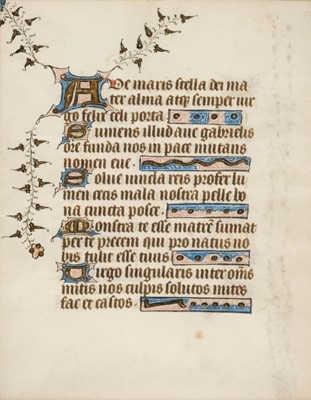 Aue maris stella dei ma
ter alma atq3 semper uir
go felix celi porta
Sumens illud aue gabrielis
ore funda nos in pace mutans
nomen eue.
Solue uincla reis profer lu
men cecis mala nostra pelle bo
na cuncta posce.
Monstra te esse matrē sumat
per te precem qui pro natus no
bis tulit esse tuus
Uirgo singularis inter om̄s
mitis nos culpis solutos mites
fac et castos.